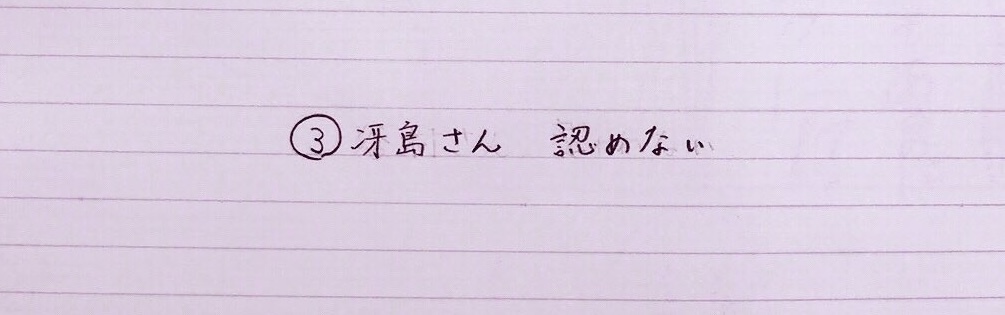 ③冴島さん　認めない